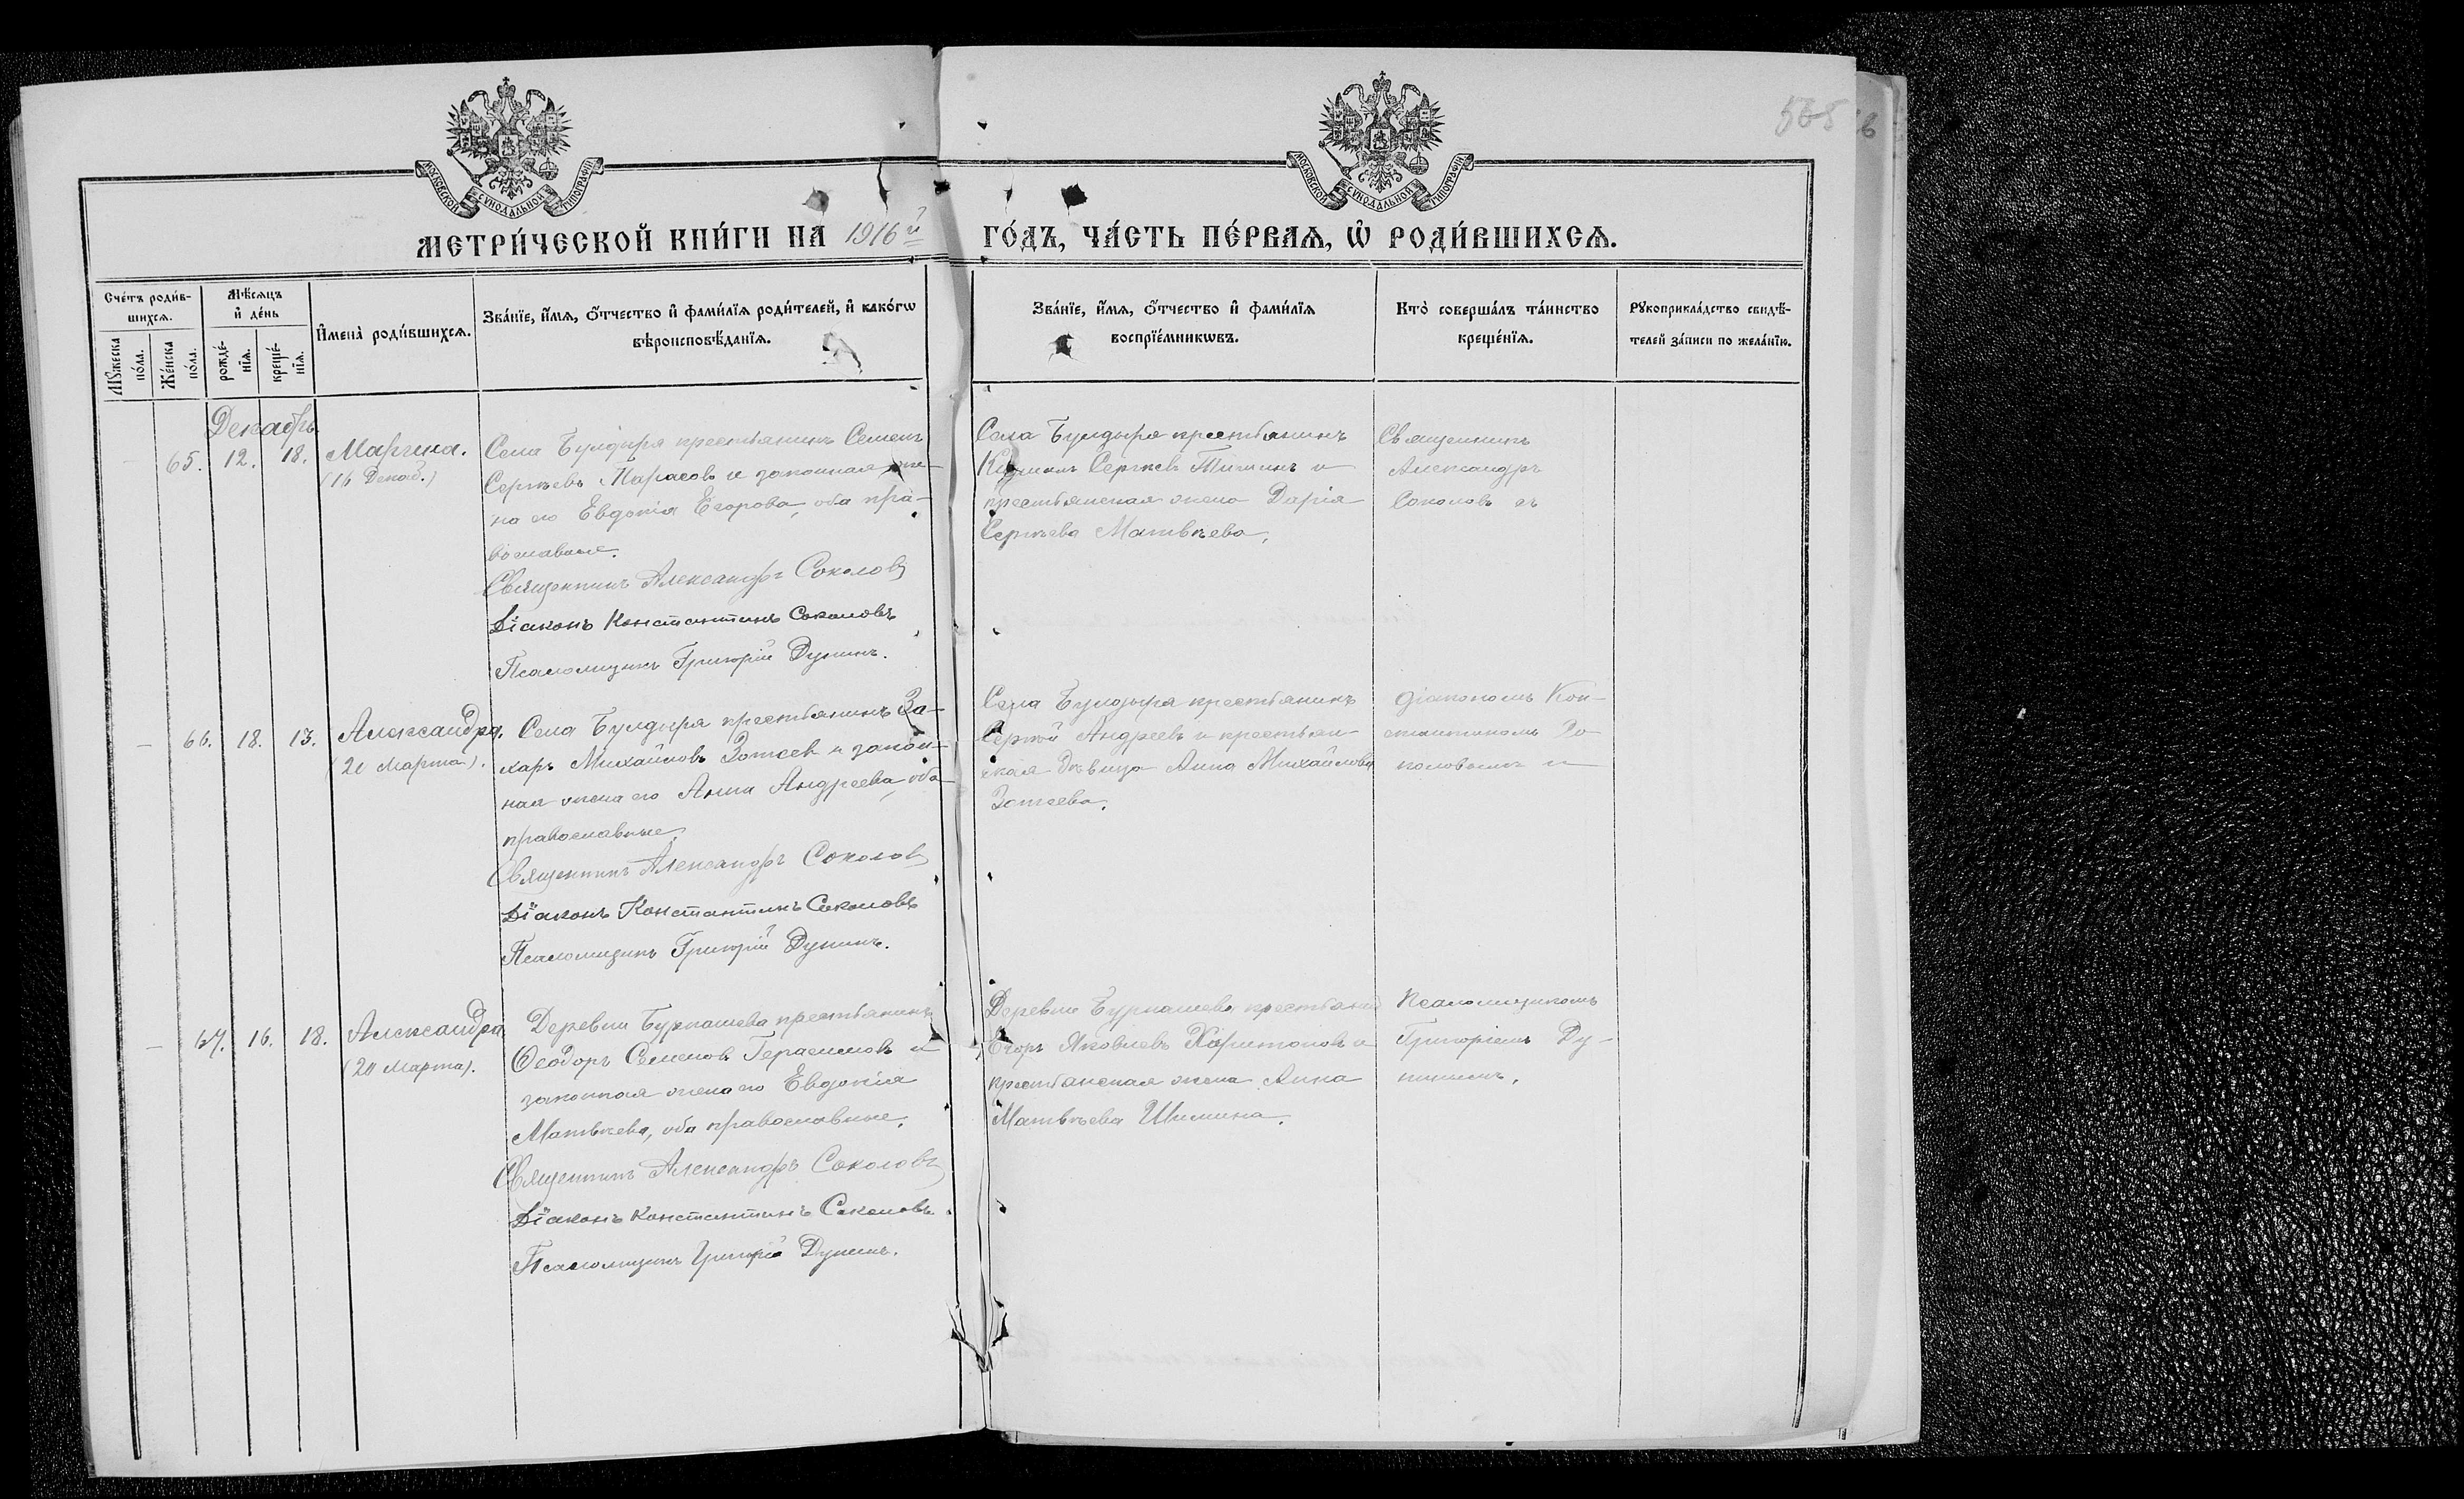 МОСКОВСКОЙ СѴНОДАЛЬНОЙ ТИПОГРАФІИ
МОСКОВСКОЙ СѴНОДАЛЬНОЙ ТИПОГРАФІИ
565
МЕТРИ́ЧЕСКОЙ КНИ́ГИ НА 1916й ГО́ДЪ, ЧА́СТЬ ПЕ́РВАѦ, Ѡ҆ РОДИ́ВШИХСѦ.
Сче́тъ роди́в-
шихсѧ.
Мꙋ́жеска
по́ла.
Же́нска
по́ла.
Мѣ́сѧцъ
и҆ де́нь
рожде́-
нїѧ.
креще́-
нїѧ.
И҆мена̀ роди́вшихсѧ.
Зва́нїе, и҆́мѧ, ѻ҆́тчество и҆ фами́лїѧ роди́телей, и҆ како́гѡ
вѣроисповѣ́данїѧ.
Зва́нїе, и҆́мѧ, ѻ҆́тчество и҆ фами́лїѧ
воспрїе́мникѡвъ.
Кто̀ соверша́лъ та́инство
креще́нїѧ.
Рꙋкоприкла́дство свидѣ́-
телей за́писи по жела́нїю.
Декабрь.
— 65. 12. 18.
(16 Декаб.)
Села Булдыря крестьянинъ Семенъ
Сергѣевъ и законная же-
на его Евдокія Егорова, оба пра-
вославные.
Священникъ Александръ Соколовъ
Діаконъ Константинъ Соколовъ
Псаломщикъ Григорій Дунинъ.
Села Булдыря крестьянинъ
Сергѣевъ и
крестьянская жена Дарія
Сергѣева Матвѣева.
Священникъ
Александръ
Соколовъ съ
— 66. 18. 13.
Александра.
(20 Марта).
Села Булдыря крестьянинъ За-
харъ Михайловъ Зотеевъ и закон-
ная жена его Анна Андреева, оба
православные.
Священникъ Александръ Соколовъ
Діаконъ Константинъ Соколовъ
Псаломщикъ Григорій Дунинъ.
Села Булдыря крестьянинъ
Сергѣй Андреевъ и крестьян-
ская дѣвица Анна Михайлова
Зотеева.
діакономъ Кон-
стантиномъ Со-
коловымъ и
— 67. 16. 18.
Александра
(20 Марта).
Деревни Бурнашева крестьянинъ
Ѳеодоръ Семеновъ Герасимовъ и
законная жена его Евдокія
Матвѣева, оба православные.
Священникъ Александръ Соколовъ
Діаконъ Константинъ Соколовъ.
Псаломщикъ Григорій Дунинъ.
Деревни Бурнашева
Егоръ Яковлевъ Харитоновъ и
крестьянская жена Анна
Матвѣева Шишина.
псаломщикомъ
Григоріемъ Ду-
нинымъ.